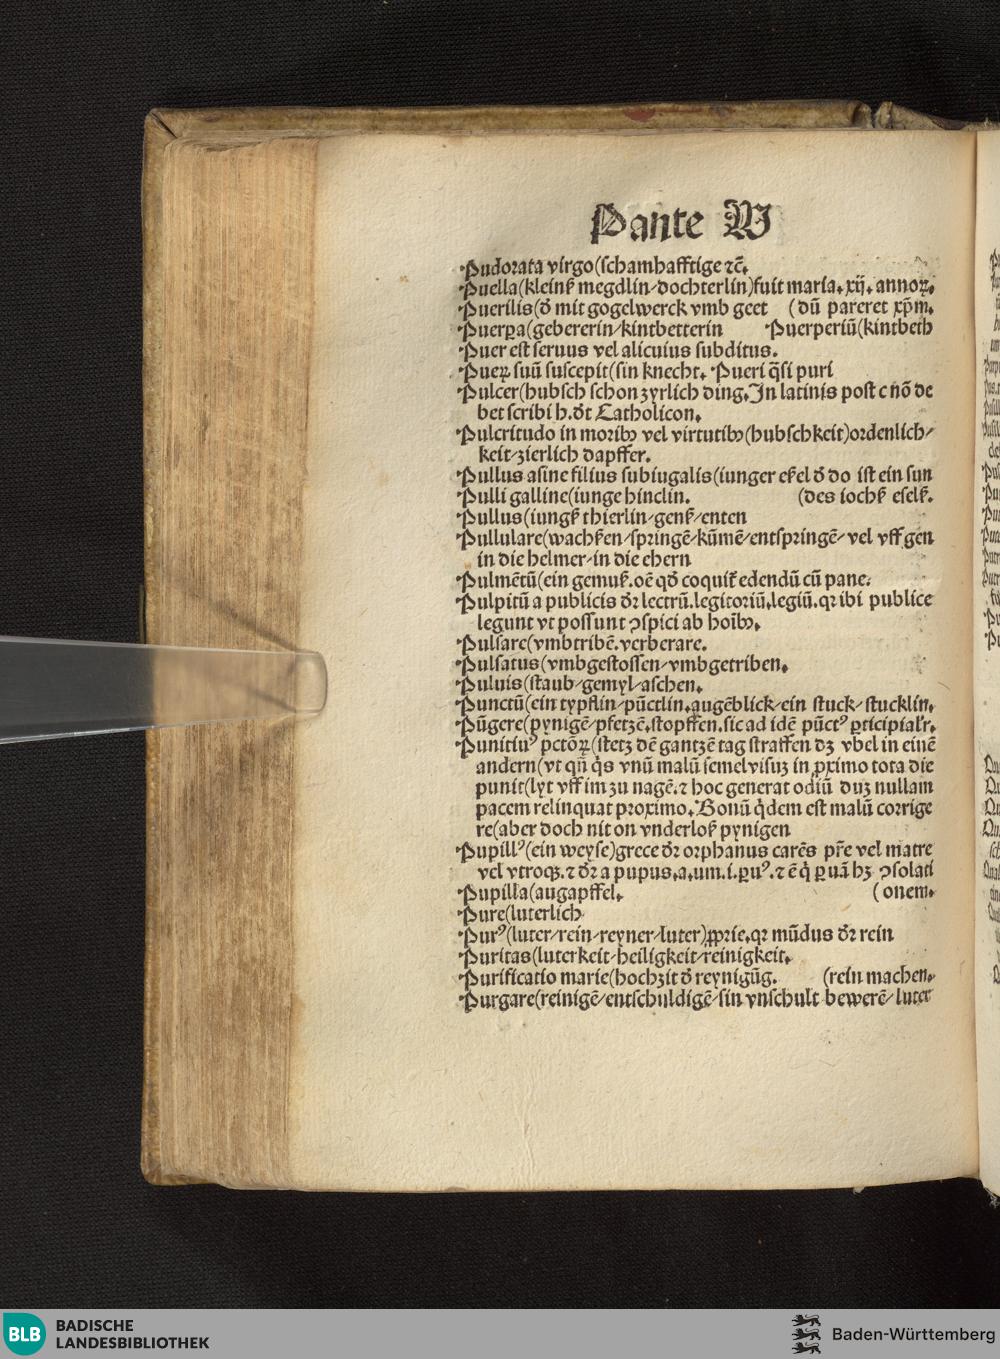 Pante W
Pudorata virgo(schamhafftige ⁊c̄.
Puella(kleinß megdlin/dochterlin)fuit maria. xij. annoꝝ.
Puerilis(ď mit gogelwerck vmb geet (dū pareret xp̄m.
Puerꝑa(gebererin/kintbetterin Puerperiū(kintbeth
Puer est seruus vel alicuius subditus.
Pueꝝ suū suscepit(sin knecht. Pueri q̄si puri
Pulcer(hubsch schon zyrlich ding. In latinis post c nō de
bet scribi h. ďt Catholicon.
Pulcritudo in moribꝰ vel virtutibꝰ(hubschkeit)ordenlich/
keit/zierlich dapffer.
Pullus asine filius subiugalis(iunger eßel ď do ist ein sun
Pulli galline(iunge hinclin. (des iochß eselß.
Pullus(iungß thierlin/genß/enten
Pullulare(wachßen/springē/kūmē/entspringē/ vel vff gen
in die helmer/in die ehern
Pulmētū(ein gemuß. oē qď coquit̄ edendū cū pane.
Pulpitū a publicis ďr lectrū. legitoriū. legiū. qꝛ ibi publice
legunt vt possunt ↄspici ab hoībꝰ.
Pulsare(vmbtribē. verberare.
Pulsatus(vmbgestossen/vmbgetriben.
Puluis(staub/gemyl/aschen.
Punctū(ein typflin/pūctlin. augēblick/ein stuck/ stucklin.
Pūgere(pynigē/pfetzē. stopffen. sic ad idē pūctꝰ ꝑticipialr̄.
Punitiuꝰ pctōꝝ(stetz dē gantzē tag straffen dz vbel in einē
andern(vt qn̄ q̇s vnū malū semel visuz in ꝓximo tota die
punit(lyt vff im zu nagē. ⁊ hoc generat odiū duz nullam
pacem relinquat proximo. Bonū q̇dem est malū corrige
re(aber doch nit on vnderloß pynigen
Pupillꝰ(ein weyse)grece ďr orphanus carēs pr̄e vel matre
vel vtroqꝫ. ⁊ ďr a pupus. a. um. i. ꝑuꝰ. ⁊ ē q̇ ꝑuā hꝫ ↄsolati
Pupilla(augapffel. (onem.
Pure(luterlich
Purꝰ(luter/rein/reyner/luter)ꝓprie. qꝛ mūdus ďr rein
Puritas(luterkeit/heiligkeit/reinigkeit.
Purificatio marie(hochzit ď reynigūg. (rein machen.
Purgare(reinigē/entschuldigē/sin vnschult bewerē/ luter
BLB
BADISCHE
LANDESBIBLIOTHEK
Baden-Württemberg